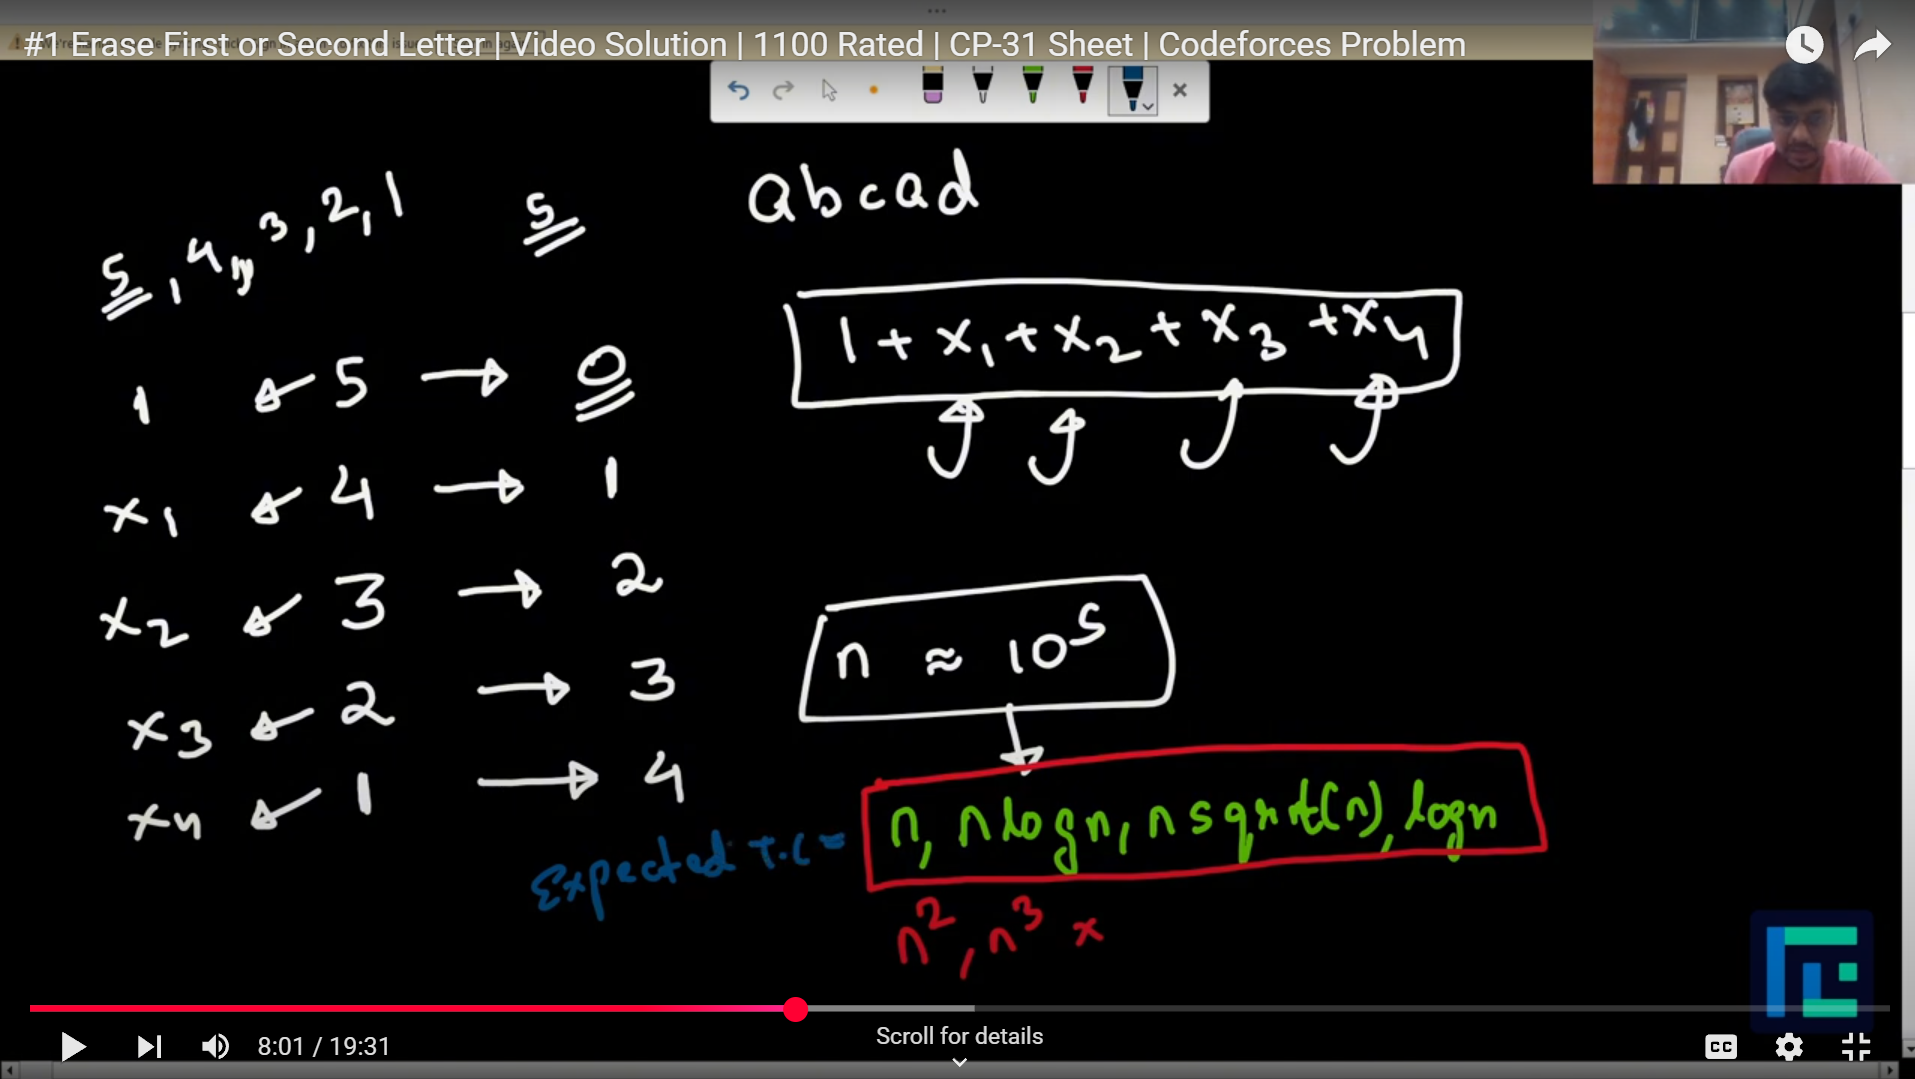 #1 Erase First or Second Letter | Video Solution | 1100 Rated | CP-31 Sheet | Codeforces Problem
5, 4, 3, 2, 1
5
abcad
1 + x1 + x2 + x3 + x4
1 ← 5 → 0
x1 ← 4 → 1
x2 ← 3 → 2
x3 ← 2 → 3
x4 ← 1 → 4
n ≈ 10^5
Expected T.C = n, n log n, n sqrt(n), log n
n^2, n^3 x
8:01 / 19:31
Scroll for details
CC